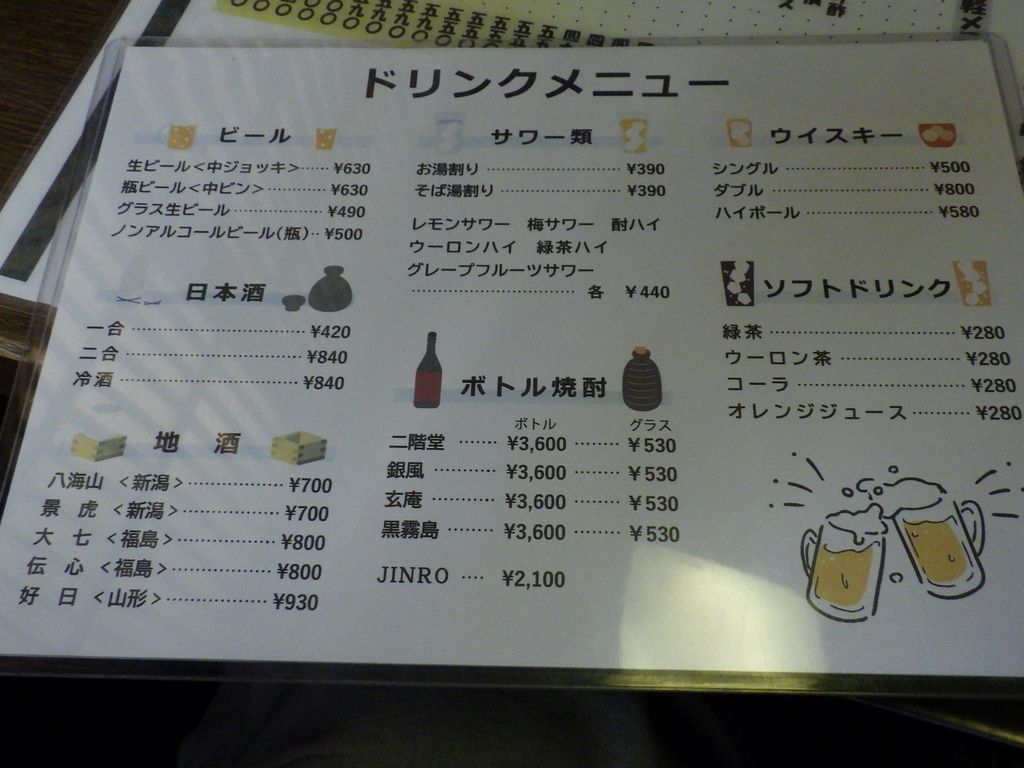 ドリンクメニュー
ビール
生ビール<中ジョッキ>……¥630
瓶ビール<中ビン>…………¥630
グラス生ビール………………¥490
ノンアルコールビール(瓶)‥¥500
日本酒
一合……………………………¥420
二合……………………………¥840
冷酒……………………………¥840
地 酒
八海山 <新潟>………………¥700
景 虎 <新潟>………………¥700
大 七 <福島>………………¥800
伝 心 <福島>………………¥800
好 日 <山形>………………¥930
サワー類
お湯割り………………………¥390
そば湯割り……………………¥390
レモンサワー 梅サワー 酎ハイ
ウーロンハイ 緑茶ハイ
グレープフルーツサワー
……………………………各 ¥440
ボトル焼酎
ボトル グラス
二階堂 ……… ¥3,600 ……… ¥530
銀風 ……… ¥3,600 ……… ¥530
玄庵 ……… ¥3,600 ……… ¥530
黒霧島 ……… ¥3,600 ……… ¥530
JINRO …. ¥2,100
ウイスキー
シングル………………………¥500
ダブル…………………………¥800
ハイボール……………………¥580
ソフトドリンク
緑茶……………………………¥280
ウーロン茶……………………¥280
コーラ…………………………¥280
オレンジジュース……………¥280